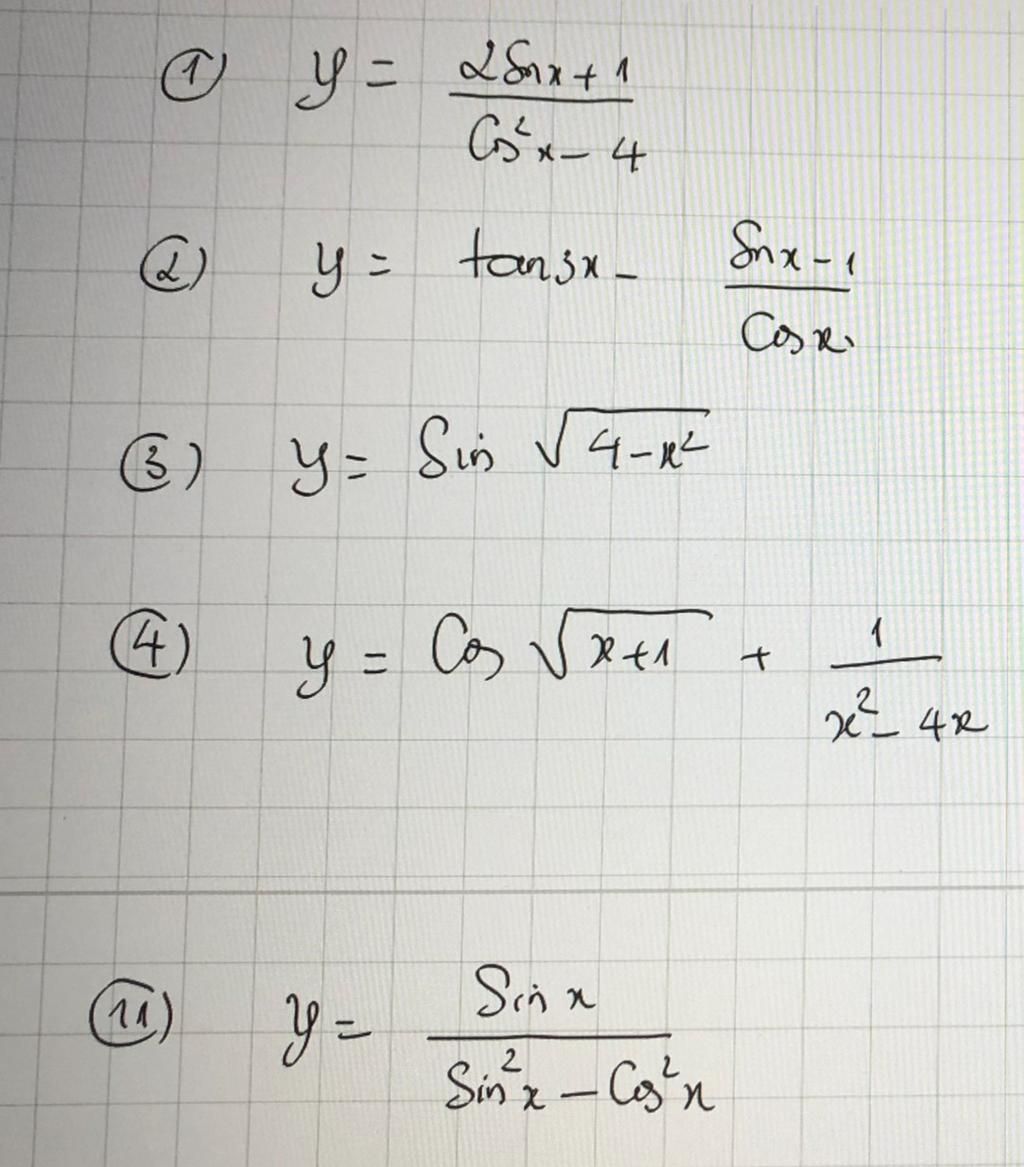 ① y = (2Sinx + 1)/(Cos²x - 4)
② y = tan3x - (Sinx - 1)/(Cosx)
③ y = Sin √(4-x²)
④ y = Cos √(x+1) + 1/(x² - 4x)
⑪ y = (Sin x)/(Sin²x - Cos²x)